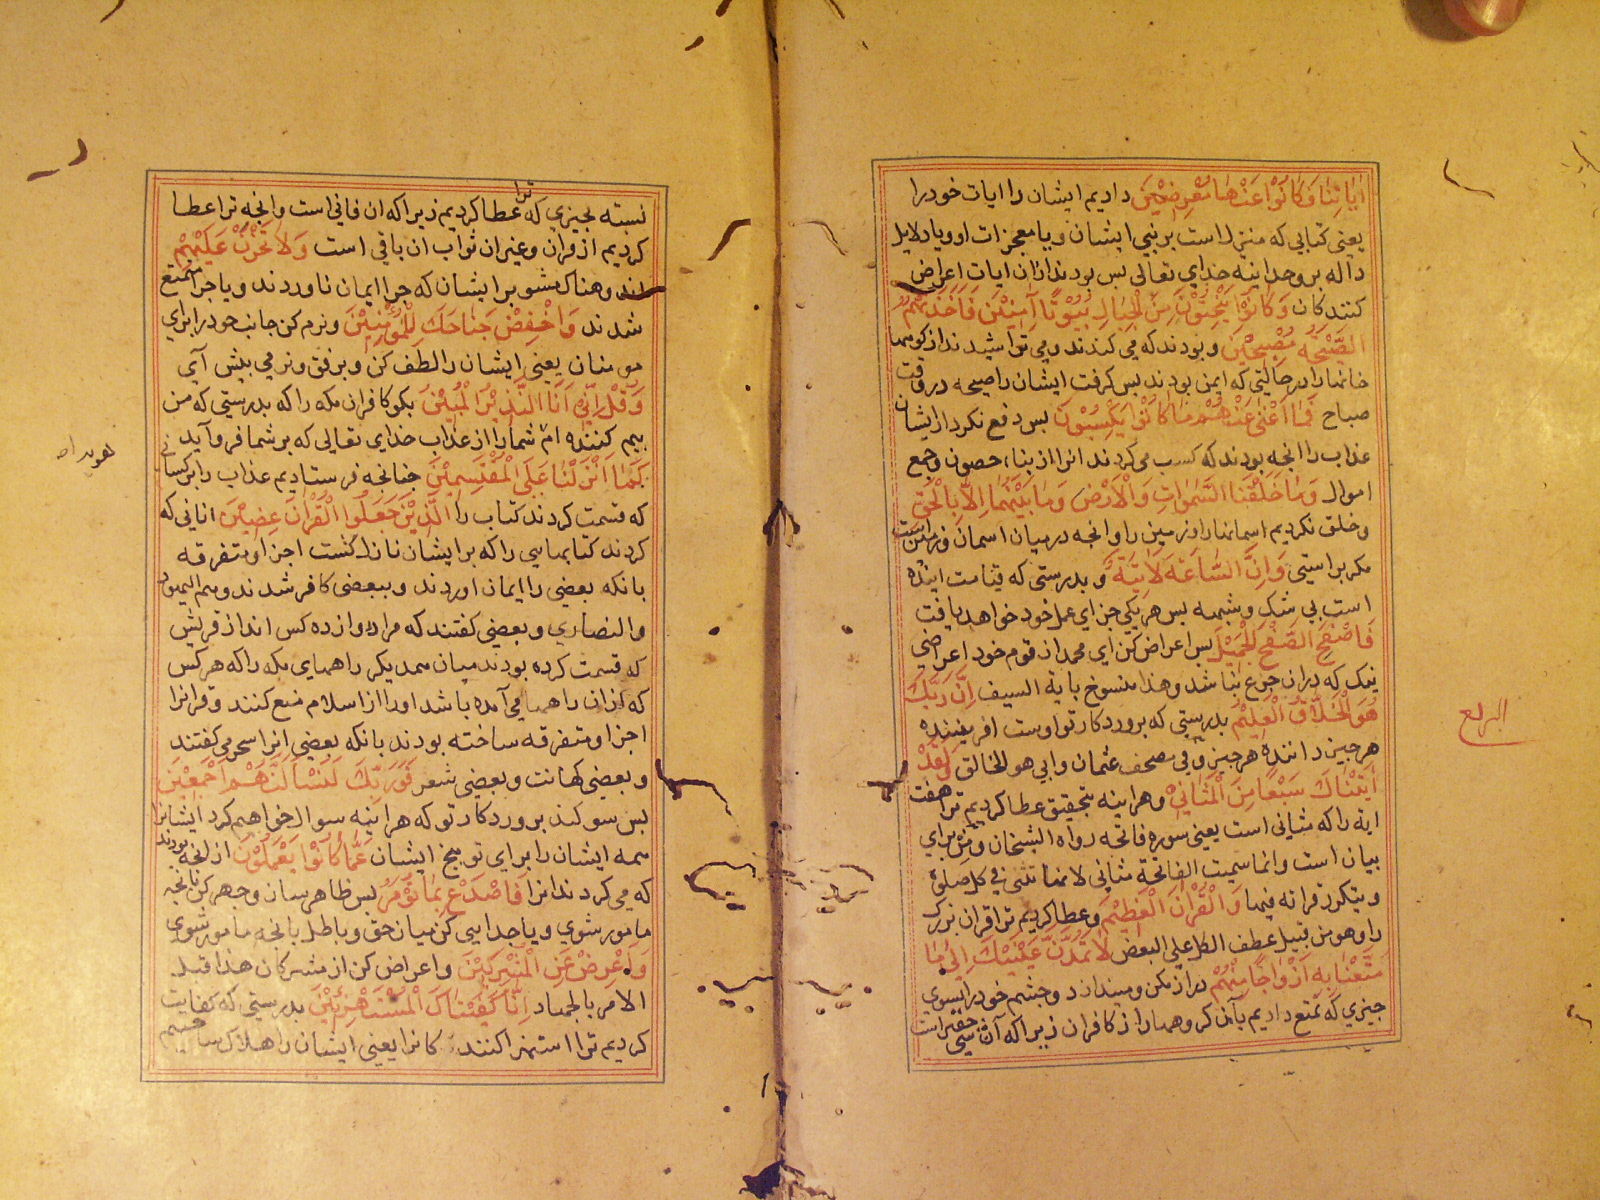 اٰيَاتِنَا فَكَانُوْا عَنْهَا مُعْرِضِيْنَ داديم ايشان را ايات خود را
يعنى كتابي كه منزل است بر نبي ايشان و يا معجزات او و يا دلايل
داله بر وحدانيه خداي تعالى بس بودند ازان ايات اعراض
كنندكان وَكَانُوْا يَنْحِتُوْنَ مِنَ الْجِبَالِ بُيُوْتًا اٰمِنِيْنَ فَاَخَذَتْهُمُ
الصَّيْحَةُ مُصْبِحِيْنَ و بودند كه مي كندند و مي تراشيدند از كوهها
خانها را در حالتي كه ايمن بودند بس كرفت ايشان را صيحه در وقت
صباح فَمَا اَغْنٰى عَنْهُمْ مَا كَانُوْا يَكْسِبُوْنَ بس دفع نكرد از ايشان
عذاب را انجه بودند كه كسب مي كردند انرا از بناء حصون و جمع
اموال وَمَا خَلَقْنَا السَّمٰوَاتِ وَالْاَرْضَ وَمَا بَيْنَهُمَا اِلَّا بِالْحَقِّ
و خلق نكرديم اسمانها را و زمين را و انجه در ميان اسمان و زمين است
مكر براستي وَاِنَّ السَّاعَةَ لَاٰتِيَةٌ و بدرستي كه قيامت اينده
است بي شك و شبهه بس هر يكي جزاي عمل خود خواهد يافت
فَاصْفَحِ الصَّفْحَ الْجَمِيْلَ بس اعراض كن اي محمد از قوم خود اعراضي
نيك كه دران جزع نباشد و هذا منسوخ باية السيف اِنَّ رَبَّكَ
هُوَ الْخَلَّاقُ الْعَلِيْمُ بدرستي كه بروردكار تو اوست افريننده
هر جيز داننده هر جيز و في مصحف عثمان و ابي هو الخالق وَلَقَدْ
اٰتَيْنَاكَ سَبْعًا مِنَ الْمَثَانِيْ و هراينه بتحقيق عطا كرديم ترا هفت
ايه را كه مثاني است يعني سوره فاتحه رواه الشيخان و من براي
بيان است و انما سميت الفاتحة مثاني لانها تثنى في كل صلوة
و يتكرر قراته فيها وَالْقُرْاٰنَ الْعَظِيْمَ و عطا كرديم ترا قران بزرك
را و هو من قبيل عطف الكل على البعض لَا تَمُدَّنَّ عَيْنَيْكَ اِلٰى مَا
مَتَّعْنَا بِهٖ اَزْوَاجًا مِنْهُمْ دراز مكن و مينداز دو جشم خود را بسوي
جيزي كه تمتع داديم بآن كروهها را از كافران زيرا كه آن شي حقير است
البرلع
نسبته بجيزي كه ترا عطا كرديم زيرا كه ان فاني است و انجه ترا عطا
كرديم از قران و غيران ثواب ان باقي است وَلَا تَحْزَنْ عَلَيْهِمْ
و هناك مشو بر ايشان كه جرا ايمان ناوردند و يا جرا متمتع
شدند وَاخْفِضْ جَنَاحَكَ لِلْمُؤْمِنِيْنَ و نرم كن جانب خود را براي
مومنان يعني ايشان را لطف كن و برفق و نرمي بيش آي
وَقُلْ اِنِّيْ اَنَا النَّذِيْرُ الْمُبِيْنُ بكو كافران مكه را كه بدرستي كه من
بيم كننده ام شما را از عذاب خداي تعالى كه بر شما فرو آيد
كَمَا اَنْزَلْنَا عَلَى الْمُقْتَسِمِيْنَ جنانجه فرستاديم عذاب را بر كساني
كه قسمت كردند كتاب را الَّذِيْنَ جَعَلُوا الْقُرْاٰنَ عِضِيْنَ اناني كه
كردند كتابهايي را كه بر ايشان نازل كشت اجزا و متفرقه
بانكه بعضي را ايمان اوردند و ببعضي كافر شدند و هم اليهود
والنصاري و بعضي كفتند كه مراد دوازده كس اند از قريش
كه قسمت كرده بودند ميان همديكر راههاي مكه را كه هر كس
كه ازان راهها مي آمده باشد اورا از اسلام منع كنند و قرانرا
اجزا و متفرقه ساخته بودند بانكه بعضي انرا سحر مي كفتند
و بعضي كهانت و بعضي شعر فَوَرَبِّكَ لَنَسْأَلَنَّهُمْ اَجْمَعِيْنَ
بس سوكند بروردكار تو كه هراينه سوال خواهم كرد ايشانرا
همه ايشان را براي توبيخ ايشان عَمَّا كَانُوْا يَعْمَلُوْنَ از انجه بودند
كه مي كردند انرا فَاصْدَعْ بِمَا تُؤْمَرُ بس ظاهر سان و جهر كن بانجه
مامور شوي و يا جدايي كن ميان حق و باطل بانجه مامور شوي
وَاَعْرِضْ عَنِ الْمُشْرِكِيْنَ و اعراض كن از مشركان هذا قبل
الامر بالجهاد اِنَّا كَفَيْنَاكَ الْمُسْتَهْزِئِيْنَ بدرستي كه كفايت
كرديم ترا استهزا كنندكانرا يعني ايشان را هلاك ساختيم